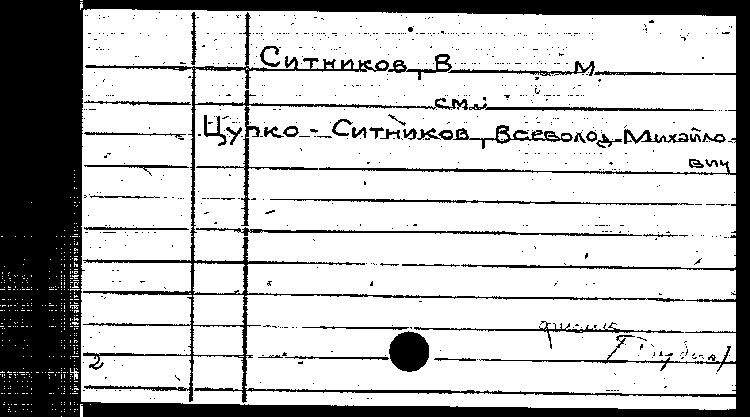 Ситников, В М.
см.:
Цупко - Ситников, Всеволод Михайло-
вич
физик
(Дубна)
2